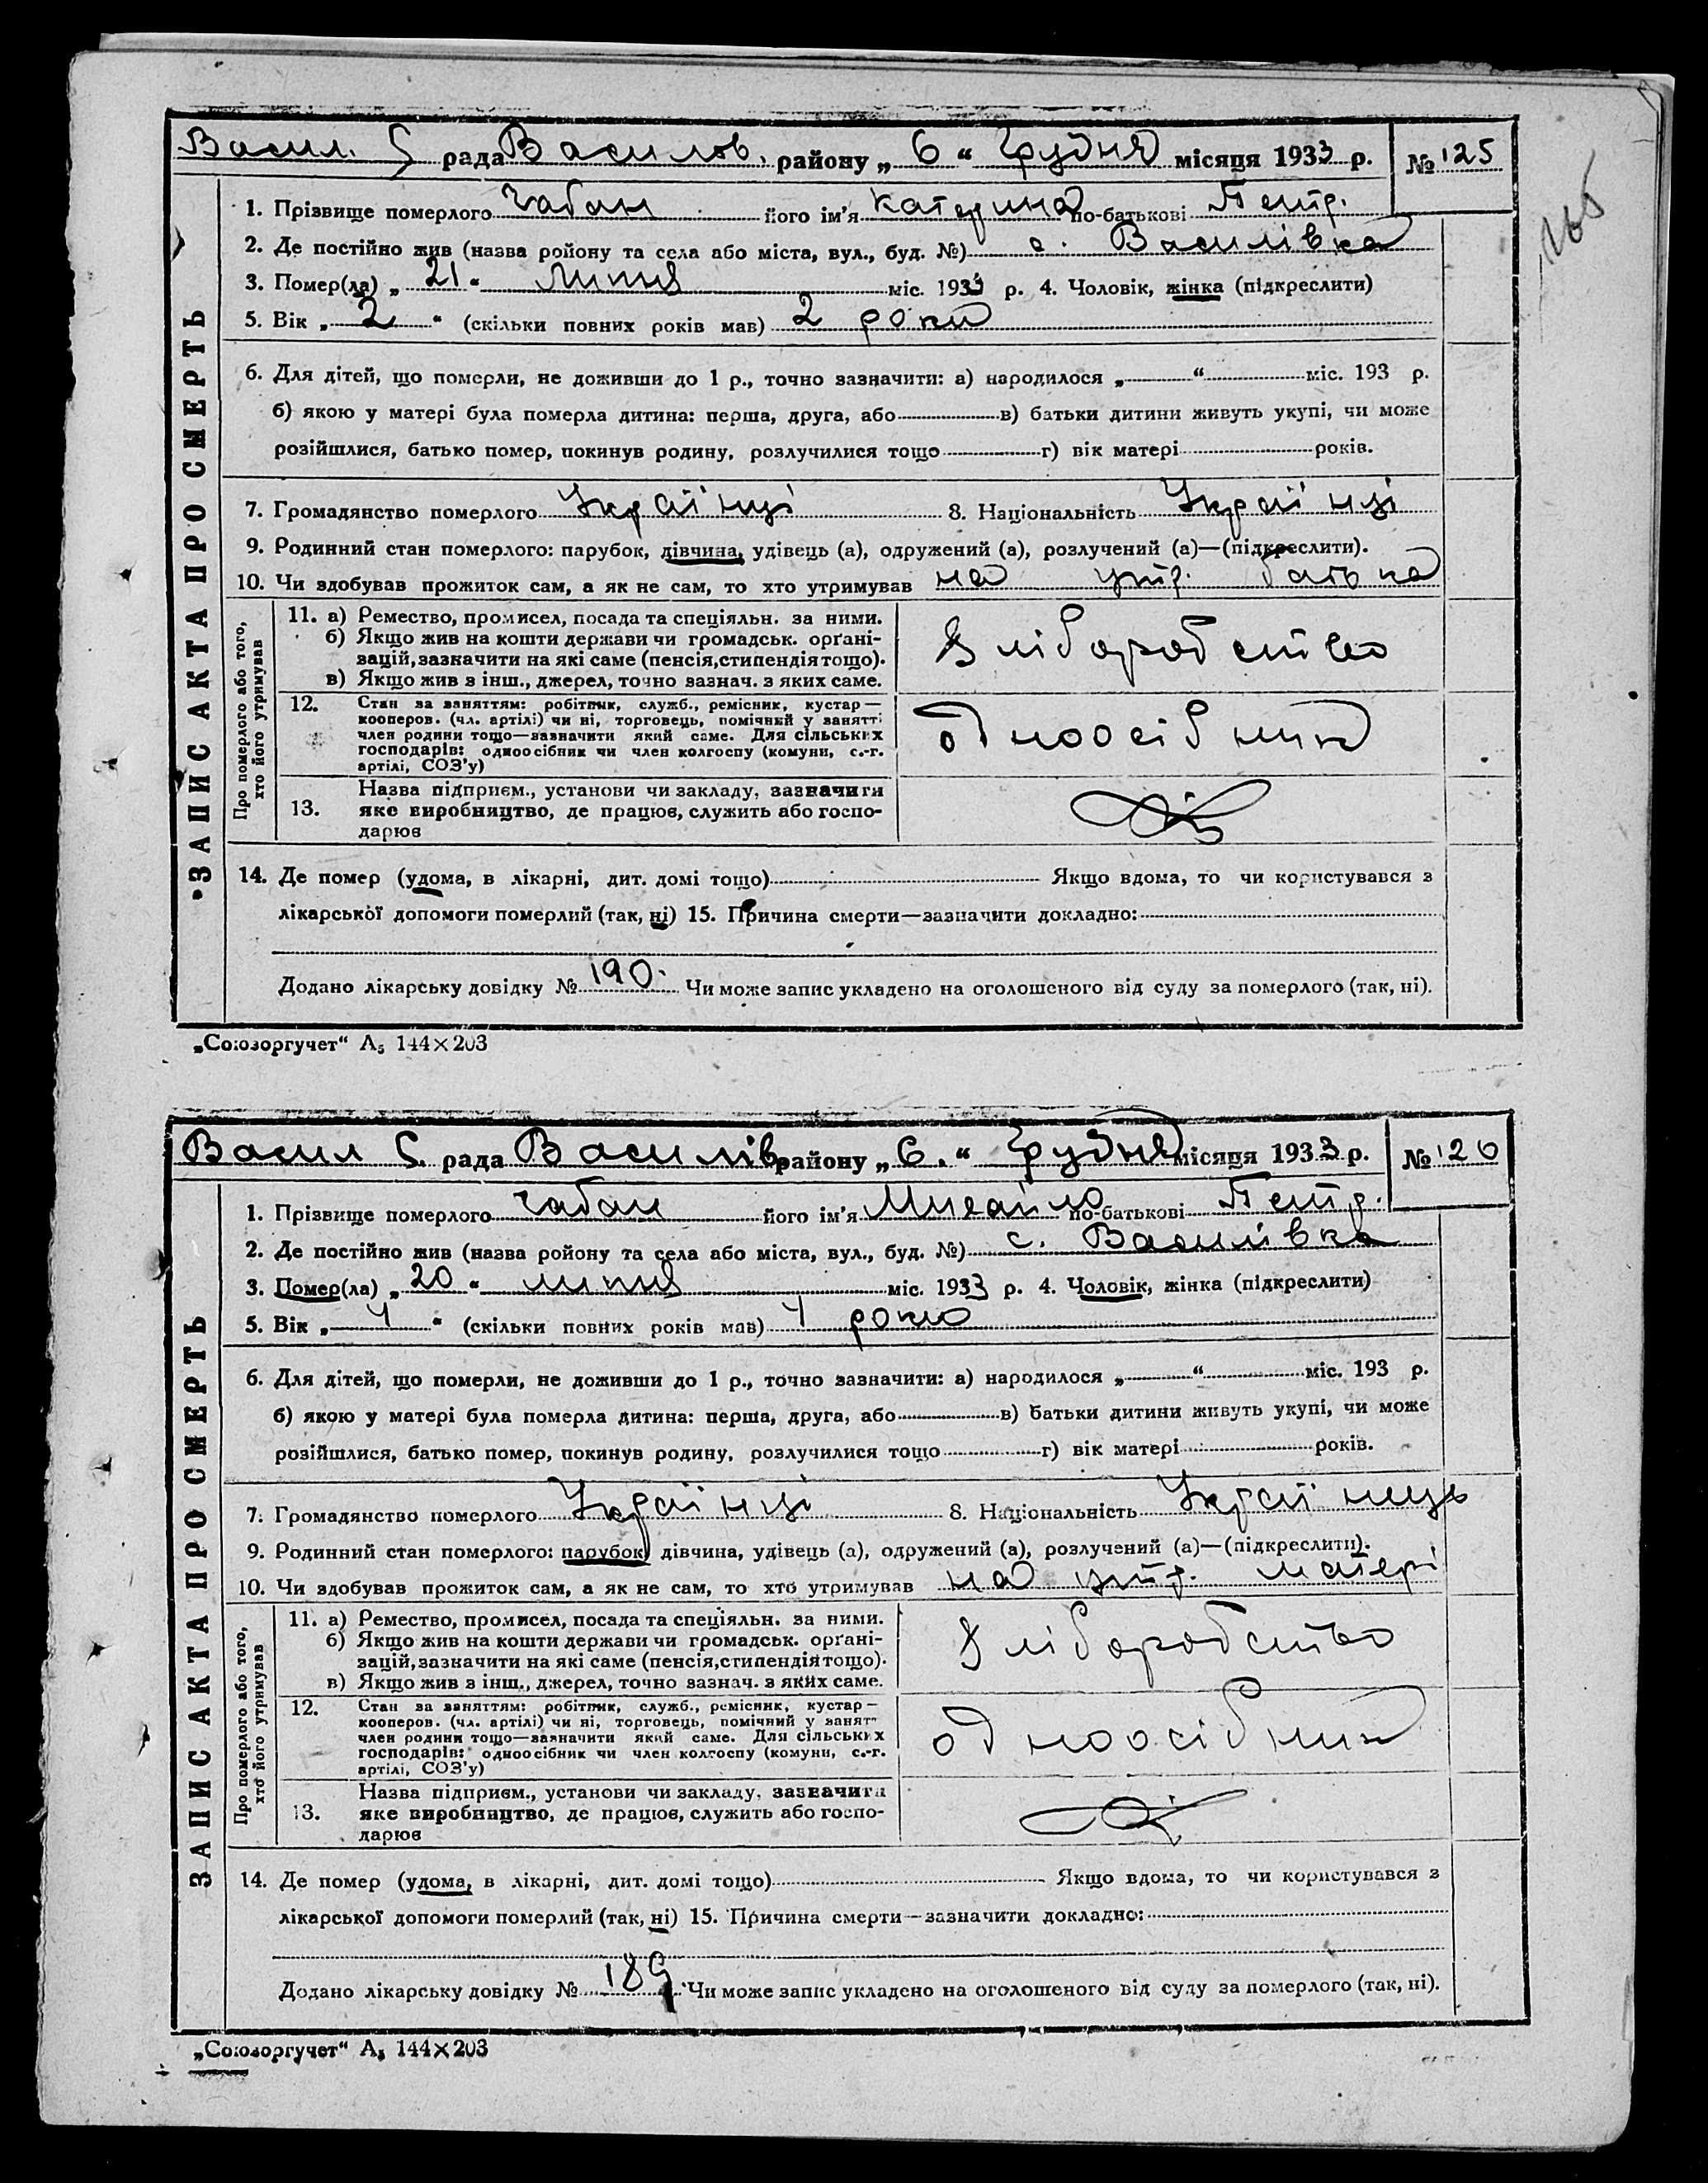 Васил. С рада Василов. району „ 6 “ Грудня місяця 1933 р. № 125
1. Прізвище померлого Чабан його ім'я Катерина по-батькові Петр.
2. Де постійно жив (назва ройону та села або міста, вул., буд. №) с. Василівка
3. Помер(ла) „ 21 “ Липня міс. 1933 р. 4. Чоловік, жінка (підкреслити)
5. Вік „ 2 “ (скільки повних років мав) 2 роки
6. Для дітей, що померли, не доживши до 1 р., точно зазначити: а) народилося „ “ міс. 193 р.
б) якою у матері була померла дитина: перша, друга, або в) батьки дитини живуть укупі, чи може
розійшлися, батько помер, покинув родину, розлучилися тощо г) вік матері років.
7. Громадянство померлого Українці 8. Національність Українці
9. Родинний стан померлого: парубок, дівчина, удівець (а), одружений (а), розлучений (а)—(підкреслити).
10. Чи здобував прожиток сам, а як не сам, то хто утримував на утр. батька
ЗАПИС АКТА ПРО СМЕРТЬ
Про померлого або того,
хто його утримував
11. а) Ремество, промисел, посада та спеціяльн. за ними.
б) Якщо жив на кошти держави чи громадськ. орґані-
зацій, зазначити на які саме (пенсія, стипендія тощо).
в) Якщо жив з інш., джерел, точно зазнач. з яких саме.
Хліборобство
12. Стан за заняттям: робітник, служб., ремісник, кустар—
кооперов. (чл. артілі) чи ні, торговець, помічний у занятті
член родини тощо—зазначити який саме. Для сільських
господарів: одноосібник чи член колгоспу (комуни, с.-г.
артілі, СОЗ'у)
одноосібник
13. Назва підприєм., установи чи закладу, зазначити
яке виробництво, де працює, служить або госпо-
дарює
14. Де помер (удома, в лікарні, дит. домі тощо) Якщо вдома, то чи користувався з
лікарської допомоги померлий (так, ні) 15. Причина смерти—зазначити докладно:
Додано лікарську довідку № 190. Чи може запис укладено на оголошеного від суду за померлого (так, ні).
„Союзоргучет“ А₅ 144×203
Васил С. рада Василів району „ 6. “ Грудня місяця 1933 р. № 126
1. Прізвище померлого Чабан його ім'я Михайло по-батькові Петр.
2. Де постійно жив (назва ройону та села або міста, вул., буд. №) с. Василівка
3. Помер(ла) „ 20 “ липня міс. 1933 р. 4. Чоловік, жінка (підкреслити)
5. Вік „ 4 “ (скільки повних років мав) 4 роки
6. Для дітей, що померли, не доживши до 1 р., точно зазначити: а) народилося „ “ міс. 193 р.
б) якою у матері була померла дитина: перша, друга, або в) батьки дитини живуть укупі, чи може
розійшлися, батько помер, покинув родину, розлучилися тощо г) вік матері років.
7. Громадянство померлого Українці 8. Національність Українець
9. Родинний стан померлого: парубок, дівчина, удівець (а), одружений (а), розлучений (а)—(підкреслити).
10. Чи здобував прожиток сам, а як не сам, то хто утримував на утр. матері
ЗАПИС АКТА ПРО СМЕРТЬ
Про померлого або того,
хто його утримував
11. а) Ремество, промисел, посада та спеціяльн. за ними.
б) Якщо жив на кошти держави чи громадськ. орґані-
зацій, зазначити на які саме (пенсія, стипендія тощо).
в) Якщо жив з інш., джерел, точно зазнач. з яких саме.
Хліборобство
12. Стан за заняттям: робітник, служб., ремісник, кустар—
кооперов. (чл. артілі) чи ні, торговець, помічний у занятт
член родини тощо—зазначити який саме. Для сільських
господарів: одноосібник чи член колгоспу (комуни, с.-г.
артілі, СОЗ'у)
одноосібник
13. Назва підприєм., установи чи закладу, зазначити
яке виробництво, де працює, служить або госпо-
дарює
14. Де помер (удома, в лікарні, дит. домі тощо) Якщо вдома, то чи користувався з
лікарської допомоги померлий (так, ні) 15. Причина смерти—зазначити докладно:
Додано лікарську довідку № 189 Чи може запис укладено на оголошеного від суду за померлого (так, ні).
„Союзоргучет“ А₅ 144×203